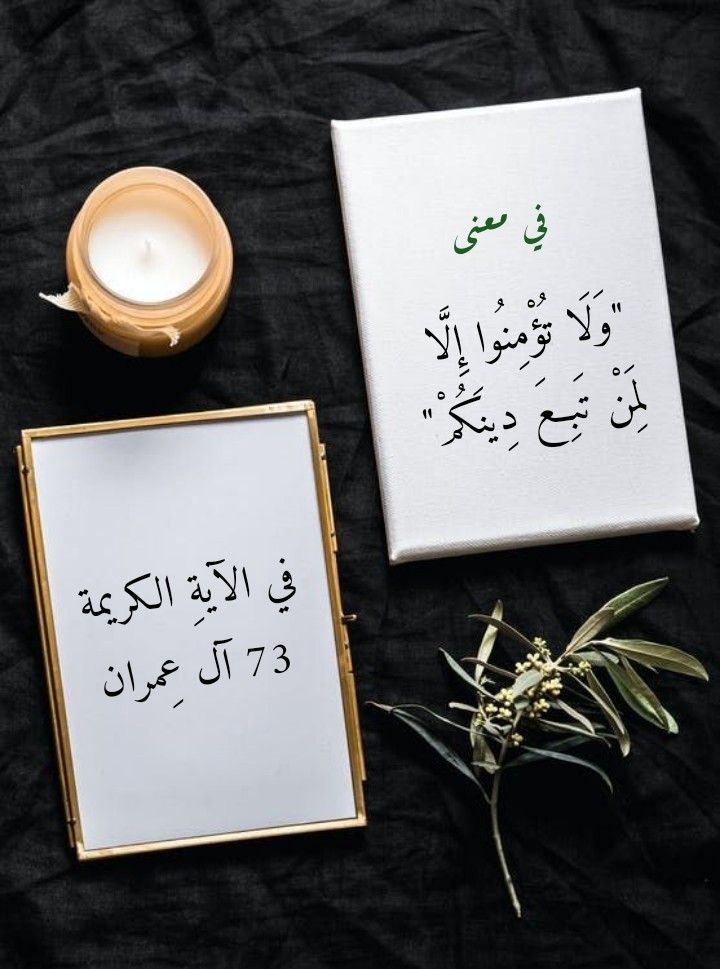 في معنى
"وَلَا تُؤْمِنُوا إِلَّا
لِمَنْ تَبِعَ دِينَكُمْ"
في الآيةِ الكريمة
73 آل عِمران